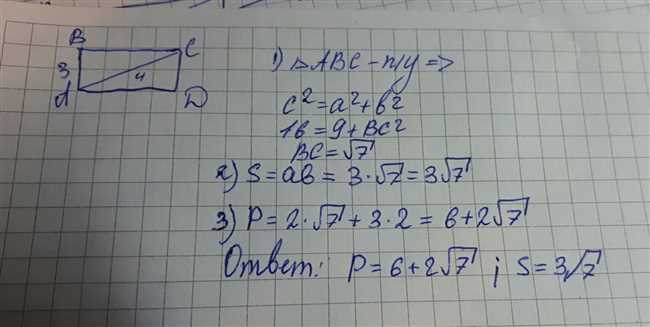 B
C
3
4
A
D
1) △ABC - п/у =>
c² = a² + b²
16 = 9 + BC²
BC = √7
2) S = ab = 3·√7 = 3√7
3) P = 2·√7 + 3·2 = 6 + 2√7
Ответ: P = 6 + 2√7 ; S = 3√7